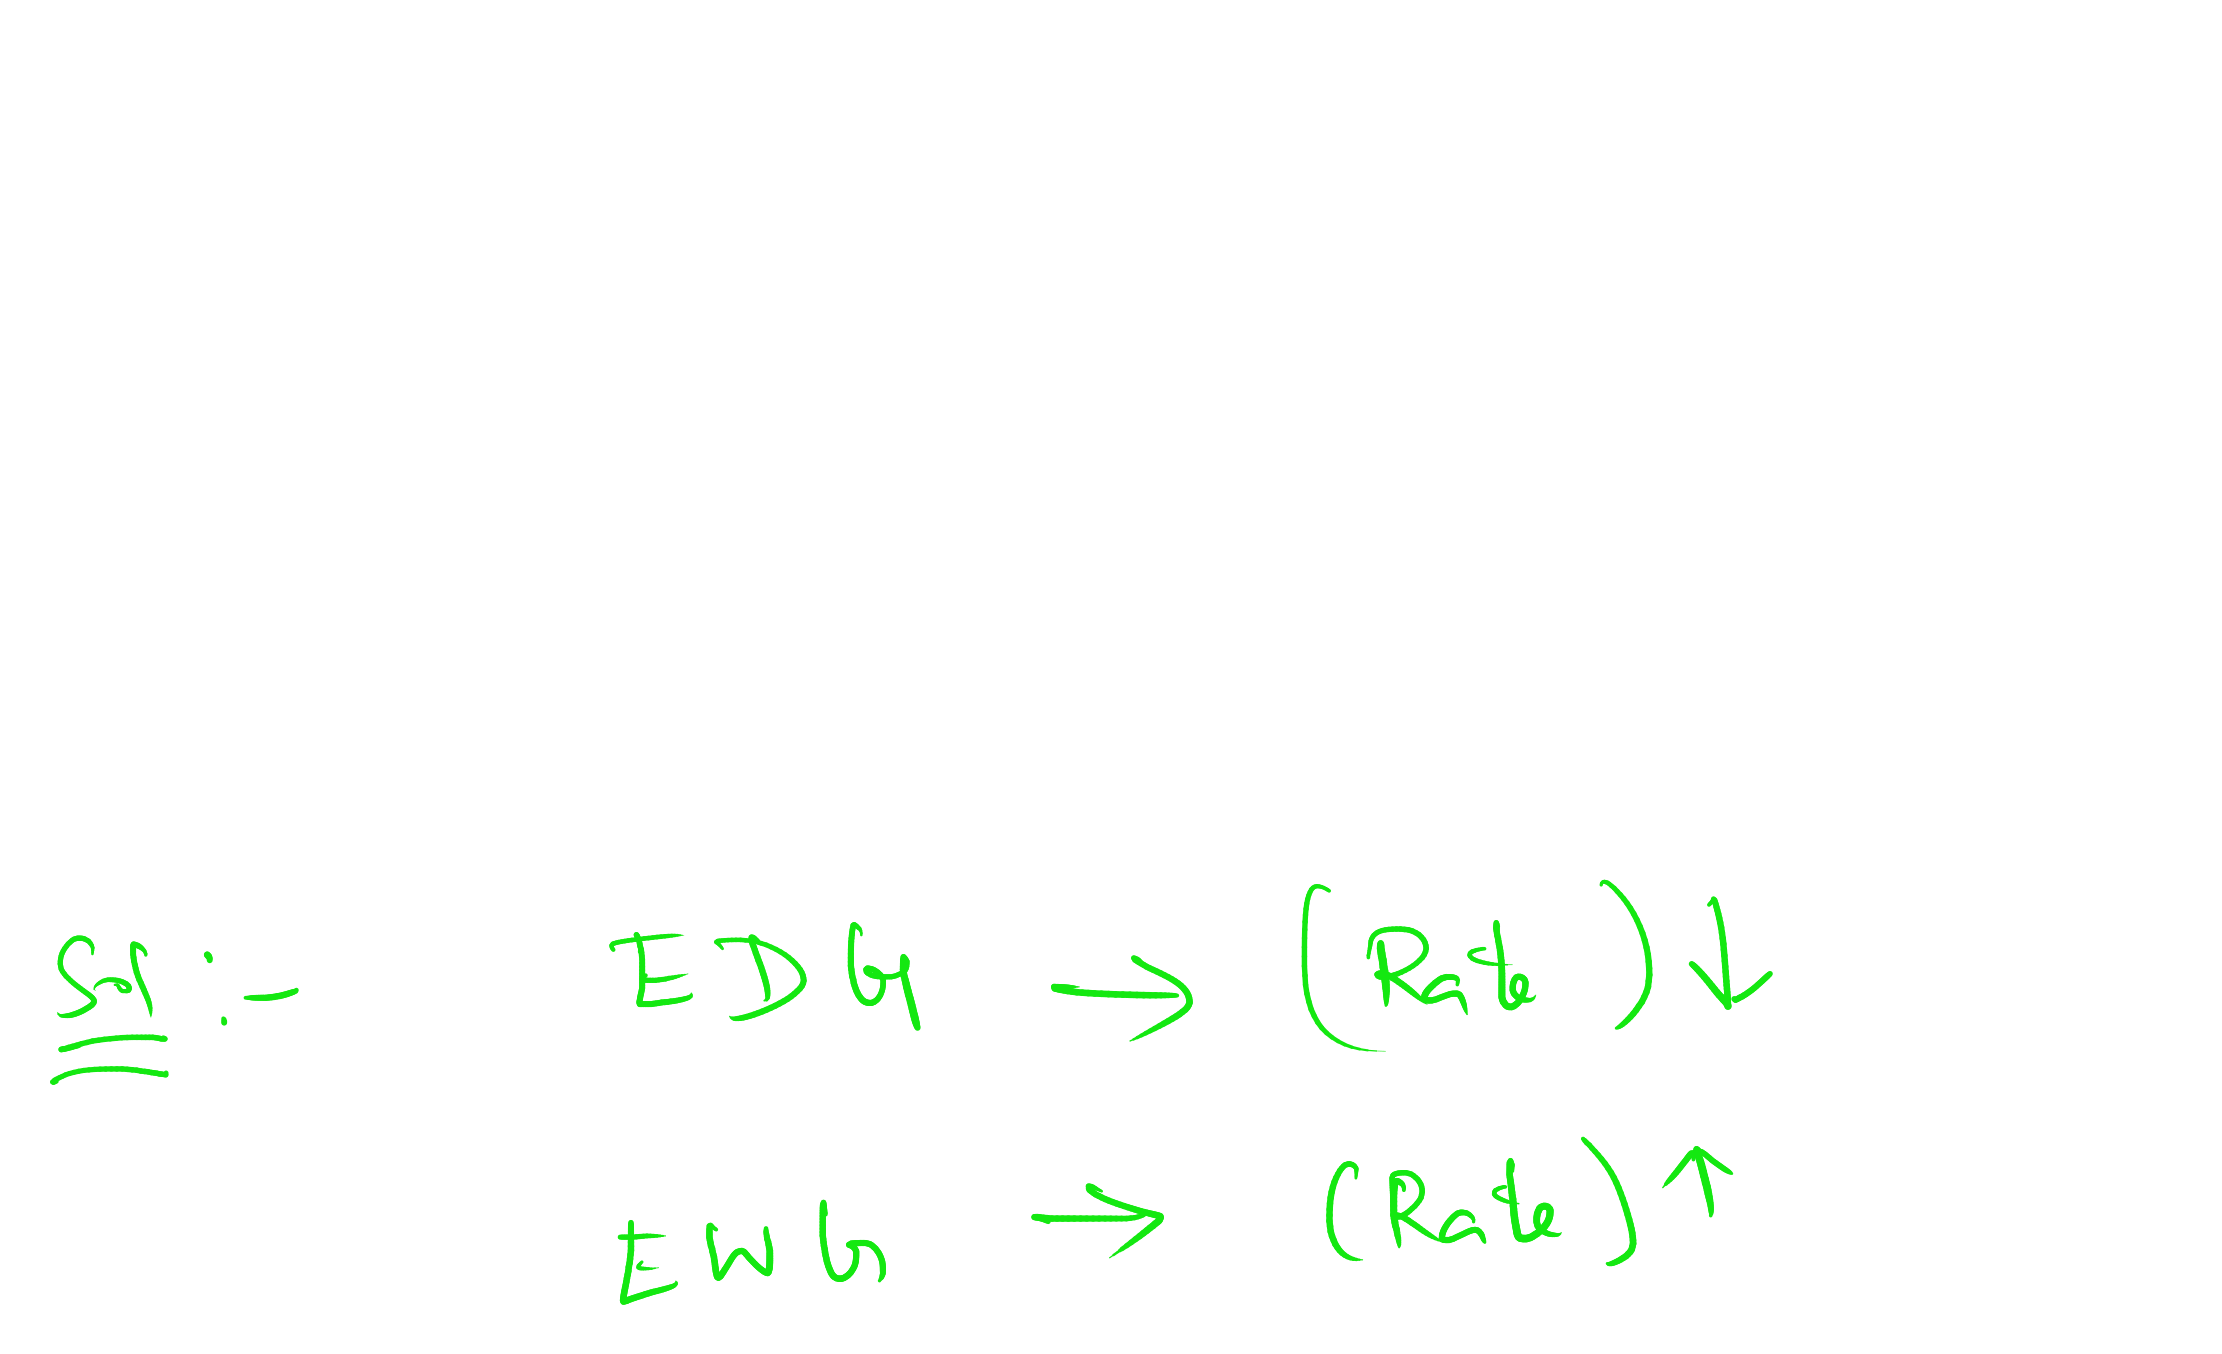 Sol :- EDG → (Rate) ↓
EWG → (Rate) ↑